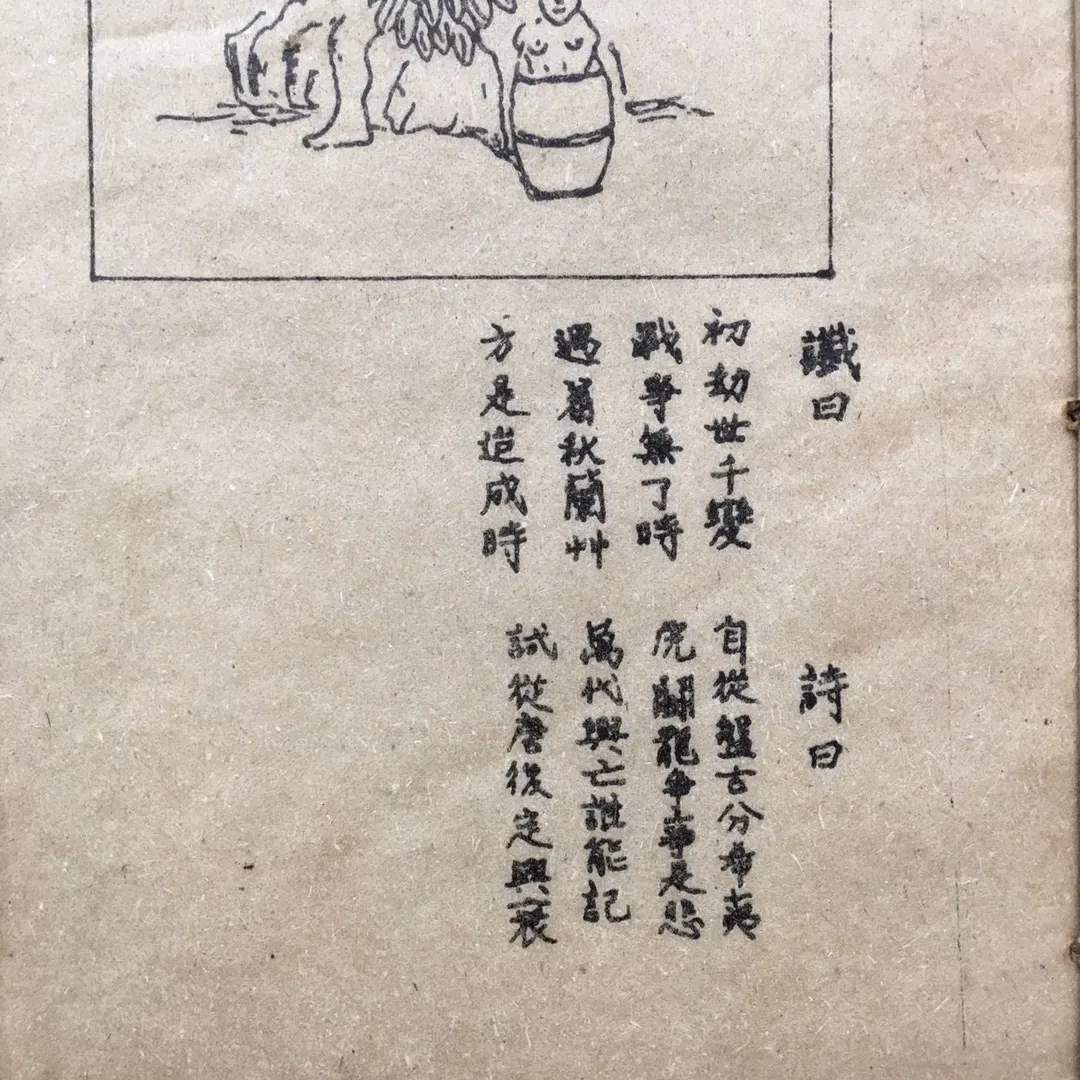 讖曰
初劫世千變
戰爭無了時
遇着秋蘭艸
方是造成時
詩曰
自從盤古分希夷
虎鬭龍爭事是悲
萬代興亡誰能記
試從唐後定興衰